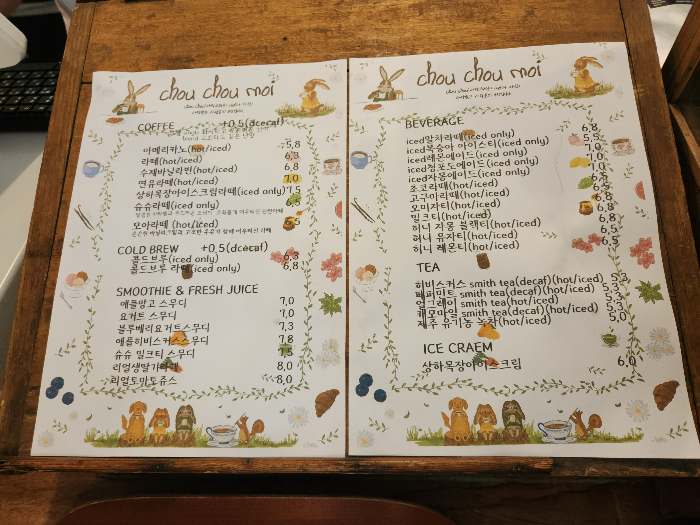 chou chou moi
COFFEE +0,5(dcecaf)
아메리카노(hot/iced) 5,8
라떼(hot/iced) 6,3
수제바닐라떼(hot/iced) 6,8
연유라떼(hot/iced) 7,0
상하목장아이스크림라떼(iced only) 7,5
슈슈라떼(iced only)
모아라떼(hot/iced)
COLD BREW +0,5(dcecaf)
콜드브루(iced only) 6,3
콜드브루 라떼(iced only) 6,8
SMOOTHIE & FRESH JUICE
애플망고 스무디 7,0
요거트 스무디 7,0
블루베리요거트스무디 7,3
애플히비스커스스무디 7,8
슈슈 밀크티 스무디 7,5
리얼생딸기라떼 8,0
리얼토마토쥬스 8,0
chou chou moi
BEVERAGE
iced말차라떼(iced only) 6,8
iced복숭아 아이스티(iced only) 5,5
iced레몬에이드(iced only) 7,0
iced청포도에이드(iced only) 7,0
iced자몽에이드(iced only) 7,0
초코라떼(hot/iced) 6,5
고구마라떼(hot/iced) 6,8
오미자티(hot/iced) 6,8
밀크티(hot/iced) 6,8
허니 자몽 블랙티(hot/iced) 6,8
허니 유자티(hot/iced) 6,5
허니 레몬티(hot/iced) 6,5
TEA
히비스커스 smith tea(decaf)(hot/iced) 5,3
페퍼민트 smith tea(decaf)(hot/iced) 5,3
얼그레이 smith tea(hot/iced) 5,3
캐모마일 smith tea(decaf)(hot/iced) 5,3
제주 유기농 녹차(hot/iced) 5,0
ICE CRAEM
상하목장아이스크림 6,0